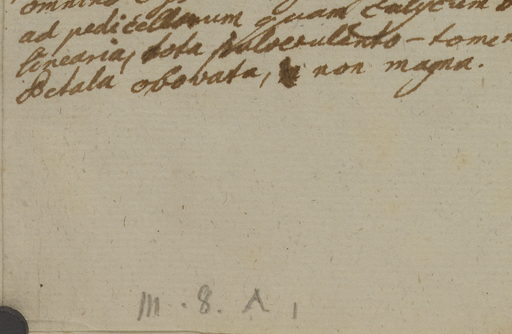 omnino
ad pedicellorum quam calycum
linearia, tota pulverulento-tomen
Petala obovata, non magna.
m. 8. A 1